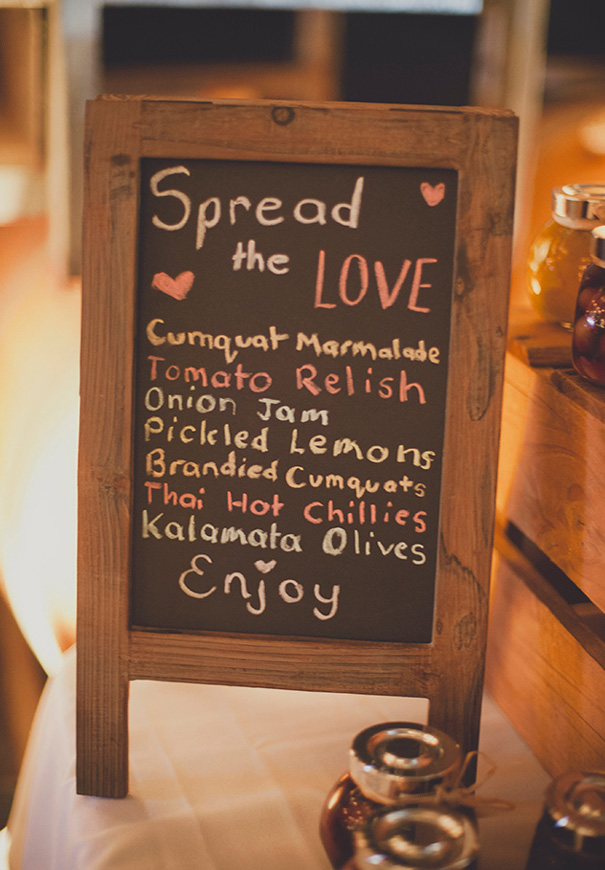 Spread
the LOVE
Cumquat Marmalade
Tomato Relish
Onion Jam
Pickled Lemons
Brandied Cumquats
Thai Hot Chillies
Kalamata Olives
Enjoy